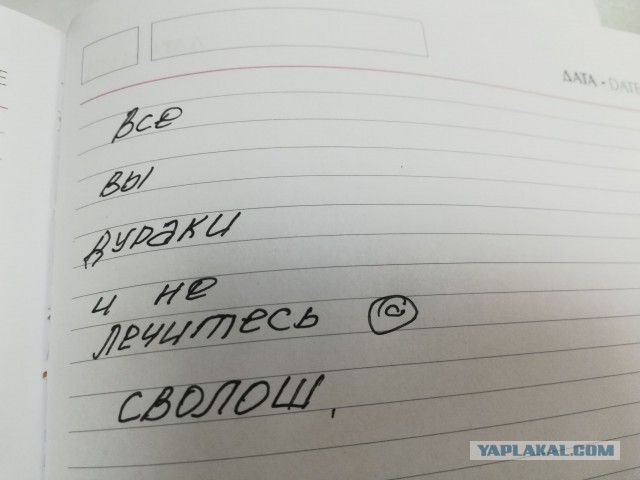 ДАТА • DATE
все
вы
дураки
и не
лечитесь ©
сволош,
YAPLAKAL.COM